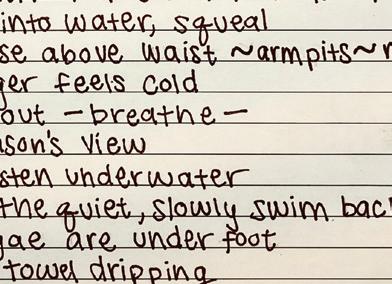 into water, squeal
se above waist ~armpits~
ger feels cold
out – breathe –
son's view
sten underwater
the quiet, slowly swim bac
gae are under foot
towel dripping